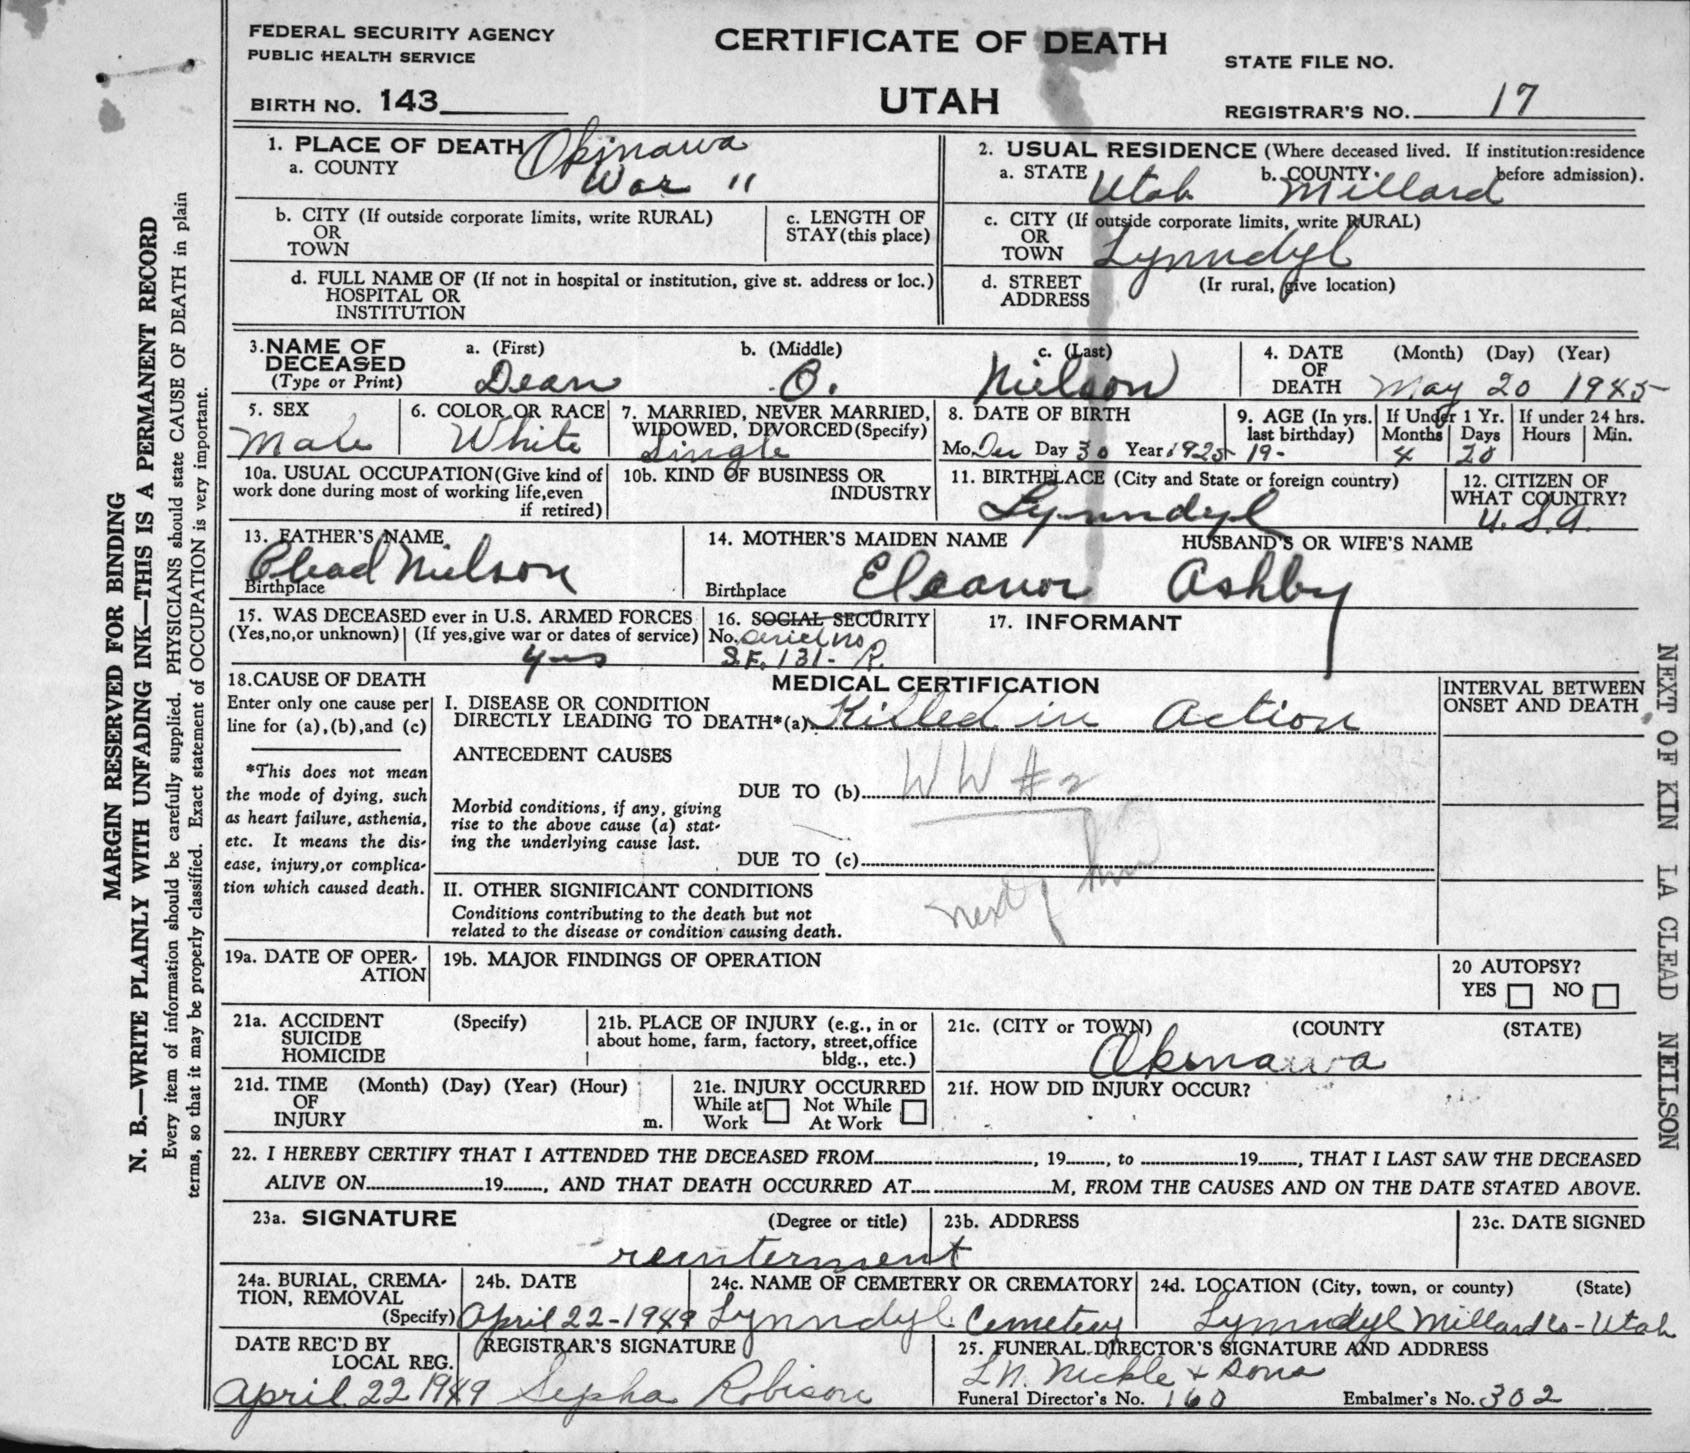 FEDERAL SECURITY AGENCY
PUBLIC HEALTH SERVICE
CERTIFICATE OF DEATH
UTAH
BIRTH NO. 143
STATE FILE NO.
REGISTRAR'S NO. 17
1. PLACE OF DEATH Okinawa
a. COUNTY War II
b. CITY (If outside corporate limits, write RURAL)
OR
TOWN
c. LENGTH OF
STAY (this place)
d. FULL NAME OF (If not in hospital or institution, give st. address or loc.)
HOSPITAL OR
INSTITUTION
2. USUAL RESIDENCE (Where deceased lived. If institution: residence
before admission).
a. STATE Utah b. COUNTY. Millard
c. CITY (If outside corporate limits, write RURAL)
OR
TOWN Lynndyl
d. STREET (Ir rural, give location)
ADDRESS
3. NAME OF DECEASED
(Type or Print)
a. (First) Dean
b. (Middle) O.
c. (Last) Nielson
4. DATE OF DEATH (Month) (Day) (Year)
May 20 1945
5. SEX
Male
6. COLOR OR RACE
White
7. MARRIED, NEVER MARRIED,
WIDOWED, DIVORCED (Specify)
Single
8. DATE OF BIRTH
Mo. Dec Day 30 Year 1925
9. AGE (In yrs.
last birthday)
19-
If Under 1 Yr.
Months Days
4 20
If under 24 hrs.
Hours Min.
10a. USUAL OCCUPATION (Give kind of
work done during most of working life, even
if retired)
10b. KIND OF BUSINESS OR
INDUSTRY
11. BIRTHPLACE (City and State or foreign country)
Lynndyl
12. CITIZEN OF
WHAT COUNTRY?
U.S.A.
13. FATHER'S NAME
Clead Nielson
Birthplace
14. MOTHER'S MAIDEN NAME HUSBAND'S OR WIFE'S NAME
Birthplace Eleanor Ashby
15. WAS DECEASED ever in U.S. ARMED FORCES
(Yes, no, or unknown) (If yes, give war or dates of service)
yes
16. SOCIAL SECURITY
No. Serial no
S.F. 131- R.
17. INFORMANT
18. CAUSE OF DEATH
Enter only one cause per
line for (a), (b), and (c)
*This does not mean
the mode of dying, such
as heart failure, asthenia,
etc. It means the dis-
ease, injury, or complica-
tion which caused death.
MEDICAL CERTIFICATION
I. DISEASE OR CONDITION
DIRECTLY LEADING TO DEATH* (a) Killed in action
ANTECEDENT CAUSES
DUE TO (b) WW #2
Morbid conditions, if any, giving
rise to the above cause (a) stat-
ing the underlying cause last.
DUE TO (c)
next of kin
II. OTHER SIGNIFICANT CONDITIONS
Conditions contributing to the death but not
related to the disease or condition causing death.
INTERVAL BETWEEN
ONSET AND DEATH
19a. DATE OF OPER-
ATION
19b. MAJOR FINDINGS OF OPERATION
20 AUTOPSY?
YES NO
21a. ACCIDENT (Specify)
SUICIDE
HOMICIDE
21b. PLACE OF INJURY (e.g., in or
about home, farm, factory, street, office
bldg., etc.)
21c. (CITY or TOWN) (COUNTY (STATE)
Okinawa
21d. TIME (Month) (Day) (Year) (Hour)
OF
INJURY m.
21e. INJURY OCCURRED
While at Work Not While At Work
21f. HOW DID INJURY OCCUR?
22. I HEREBY CERTIFY THAT I ATTENDED THE DECEASED FROM , 19 , to 19 , THAT I LAST SAW THE DECEASED
ALIVE ON 19 , AND THAT DEATH OCCURRED AT M, FROM THE CAUSES AND ON THE DATE STATED ABOVE.
23a. SIGNATURE (Degree or title)
23b. ADDRESS
23c. DATE SIGNED
reinterment
24a. BURIAL, CREMA-
TION, REMOVAL
(Specify)
24b. DATE
April 22-1949
24c. NAME OF CEMETERY OR CREMATORY
Lynndyl Cemetery
24d. LOCATION (City, town, or county) (State)
Lynndyl Millard Co- Utah
DATE REC'D BY
LOCAL REG.
April 22 1949
REGISTRAR'S SIGNATURE
Sepha Robison
25. FUNERAL DIRECTOR'S SIGNATURE AND ADDRESS
L.N. Nickle & Sons
Funeral Director's No. 160 Embalmer's No. 302
MARGIN RESERVED FOR BINDING
N. B.—WRITE PLAINLY WITH UNFADING INK—THIS IS A PERMANENT RECORD
Every item of information should be carefully supplied. PHYSICIANS should state CAUSE OF DEATH in plain
terms, so that it may be properly classified. Exact statement of OCCUPATION is very important.
NEXT OF KIN LA CLEAD NEILSON